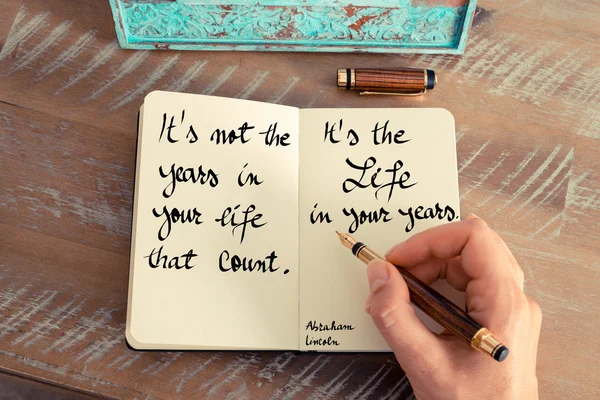 It's not the
years in
your life
that count.
It's the
Life
in your years.
Abraham
Lincoln